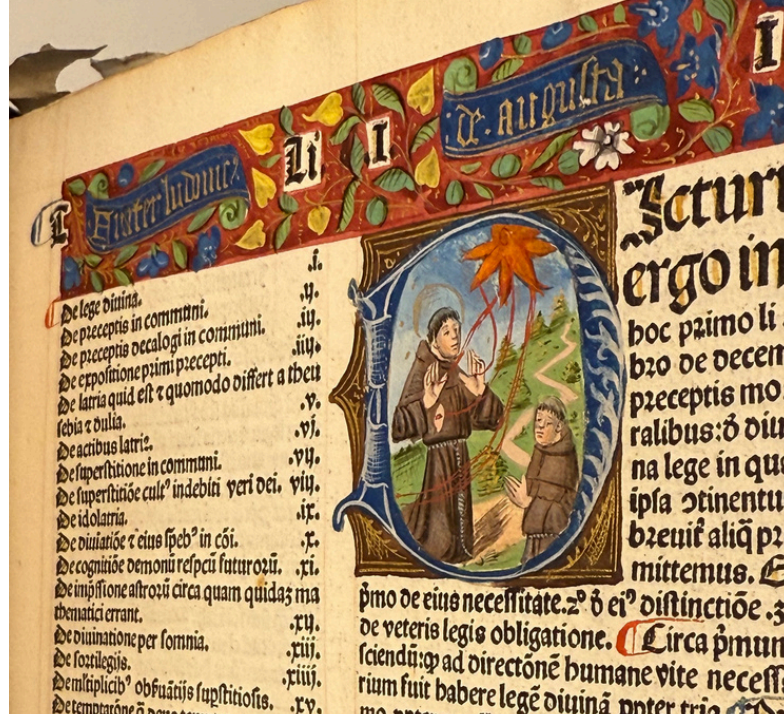 Frater ludouic⁹
Li I
de augusta
I
.i.
De lege diuina.
.ij.
De preceptis in communi.
.iij.
De preceptis decalogi in communi.
.iiij.
De expositione primi precepti.
De latria quid est ⁊ quomodo differt a theu
sebia ⁊ dulia.
.v.
De actibus latrie.
.vj.
De superstitione in communi.
.vij.
De superstitiōe cult⁹ indebiti veri dei. viij.
De idolatria.
.ix.
De diuiatiōe ⁊ eius speb⁹ in cōi.
.x.
De cognitiōe demonū respcū futurorū. .xi.
De imp̄ssione astrorū circa quam quidaꝫ ma
thematici errant.
.xij.
De diuinatione per somnia.
.xiij.
De sortilegijs.
.xiiij.
De mltiplicib⁹ obſuātijs suꝑstitiosis. .xv.
Sctur
ergo in
hoc primo li
bro de decem
preceptis mo
ralibus: đ diu
na lege in qua
ipsa ↄtinentu
breuiť aliq̄ pr
mittemus.
p̄mo de eius necessitate. 2º đ ei⁹ distinctiōe .3
de veteris legis obligatione. Circa p̄mum
sciendū: ꝙ ad directōnē humane vite necess
rium fuit habere legē diuinā ꝓpter tria